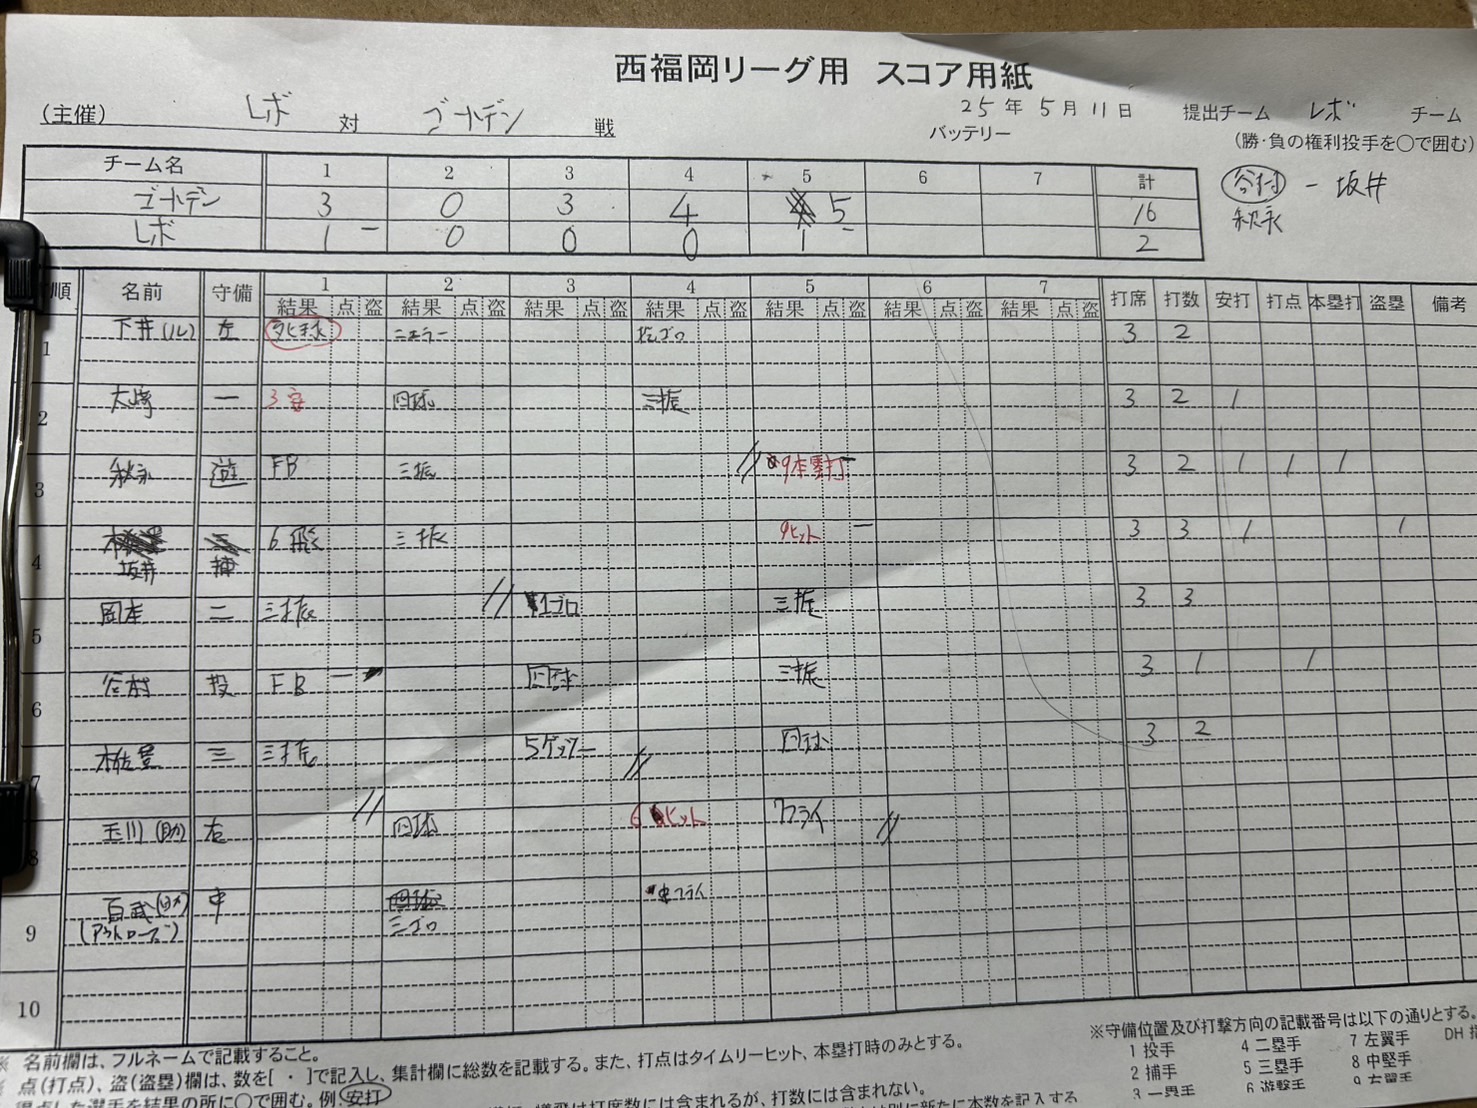 西福岡リーグ用 スコア用紙
(主催) レボ 対 ゴールデン 戦
25年 5月 11日 提出チーム レボ チーム
バッテリー (勝・負の権利投手を〇で囲む)
チーム名 1 2 3 4 5 6 7 計
ゴールデン 3 0 3 4 5 16
レボ 1 0 0 0 1 2
谷村 - 坂井
秋永
順 名前 守備 1 2 3 4 5 6 7 打席 打数 安打 打点 本塁打 盗塁 備考
結果 点 盗 結果 点 盗 結果 点 盗 結果 点 盗 結果 点 盗 結果 点 盗 結果 点 盗
1 下井(ル) 左 死球 ニエラー 投ゴロ 3 2
2 大崎 一 3安 四球 三振 3 2 1
3 秋永 遊 FB 三振 9本塁打 3 2 1 1 1
4 6飛 三振 9ヒット 3 3 1 1
坂井 捕
5 岡本 二 三振 1ゴロ 三振 3 3
6 谷村 投 FB 四球 三振 3 1 1
7 三 三振 5ゲッツー 四球 3 2
8 玉川(助) 右 四球 6 ヒット 7フライ
9 百武(助) 中 中フライ
(アウトローズ) 三ゴロ
10
※ 名前欄は、フルネームで記載すること。
※ 点(打点)、盗(盗塁)欄は、数を[ ・ ]で記入し、集計欄に総数を記載する。また、打点はタイムリーヒット、本塁打時のみとする。
得点した選手を結果の所に〇で囲む。例 安打
犠飛は打席数には含まれるが、打数には含まれない。
※守備位置及び打撃方向の記載番号は以下の通りとする。
1 投手 4 二塁手 7 左翼手 DH
2 捕手 5 三塁手 8 中堅手
3 一塁手 6 遊撃手 9 右翼手